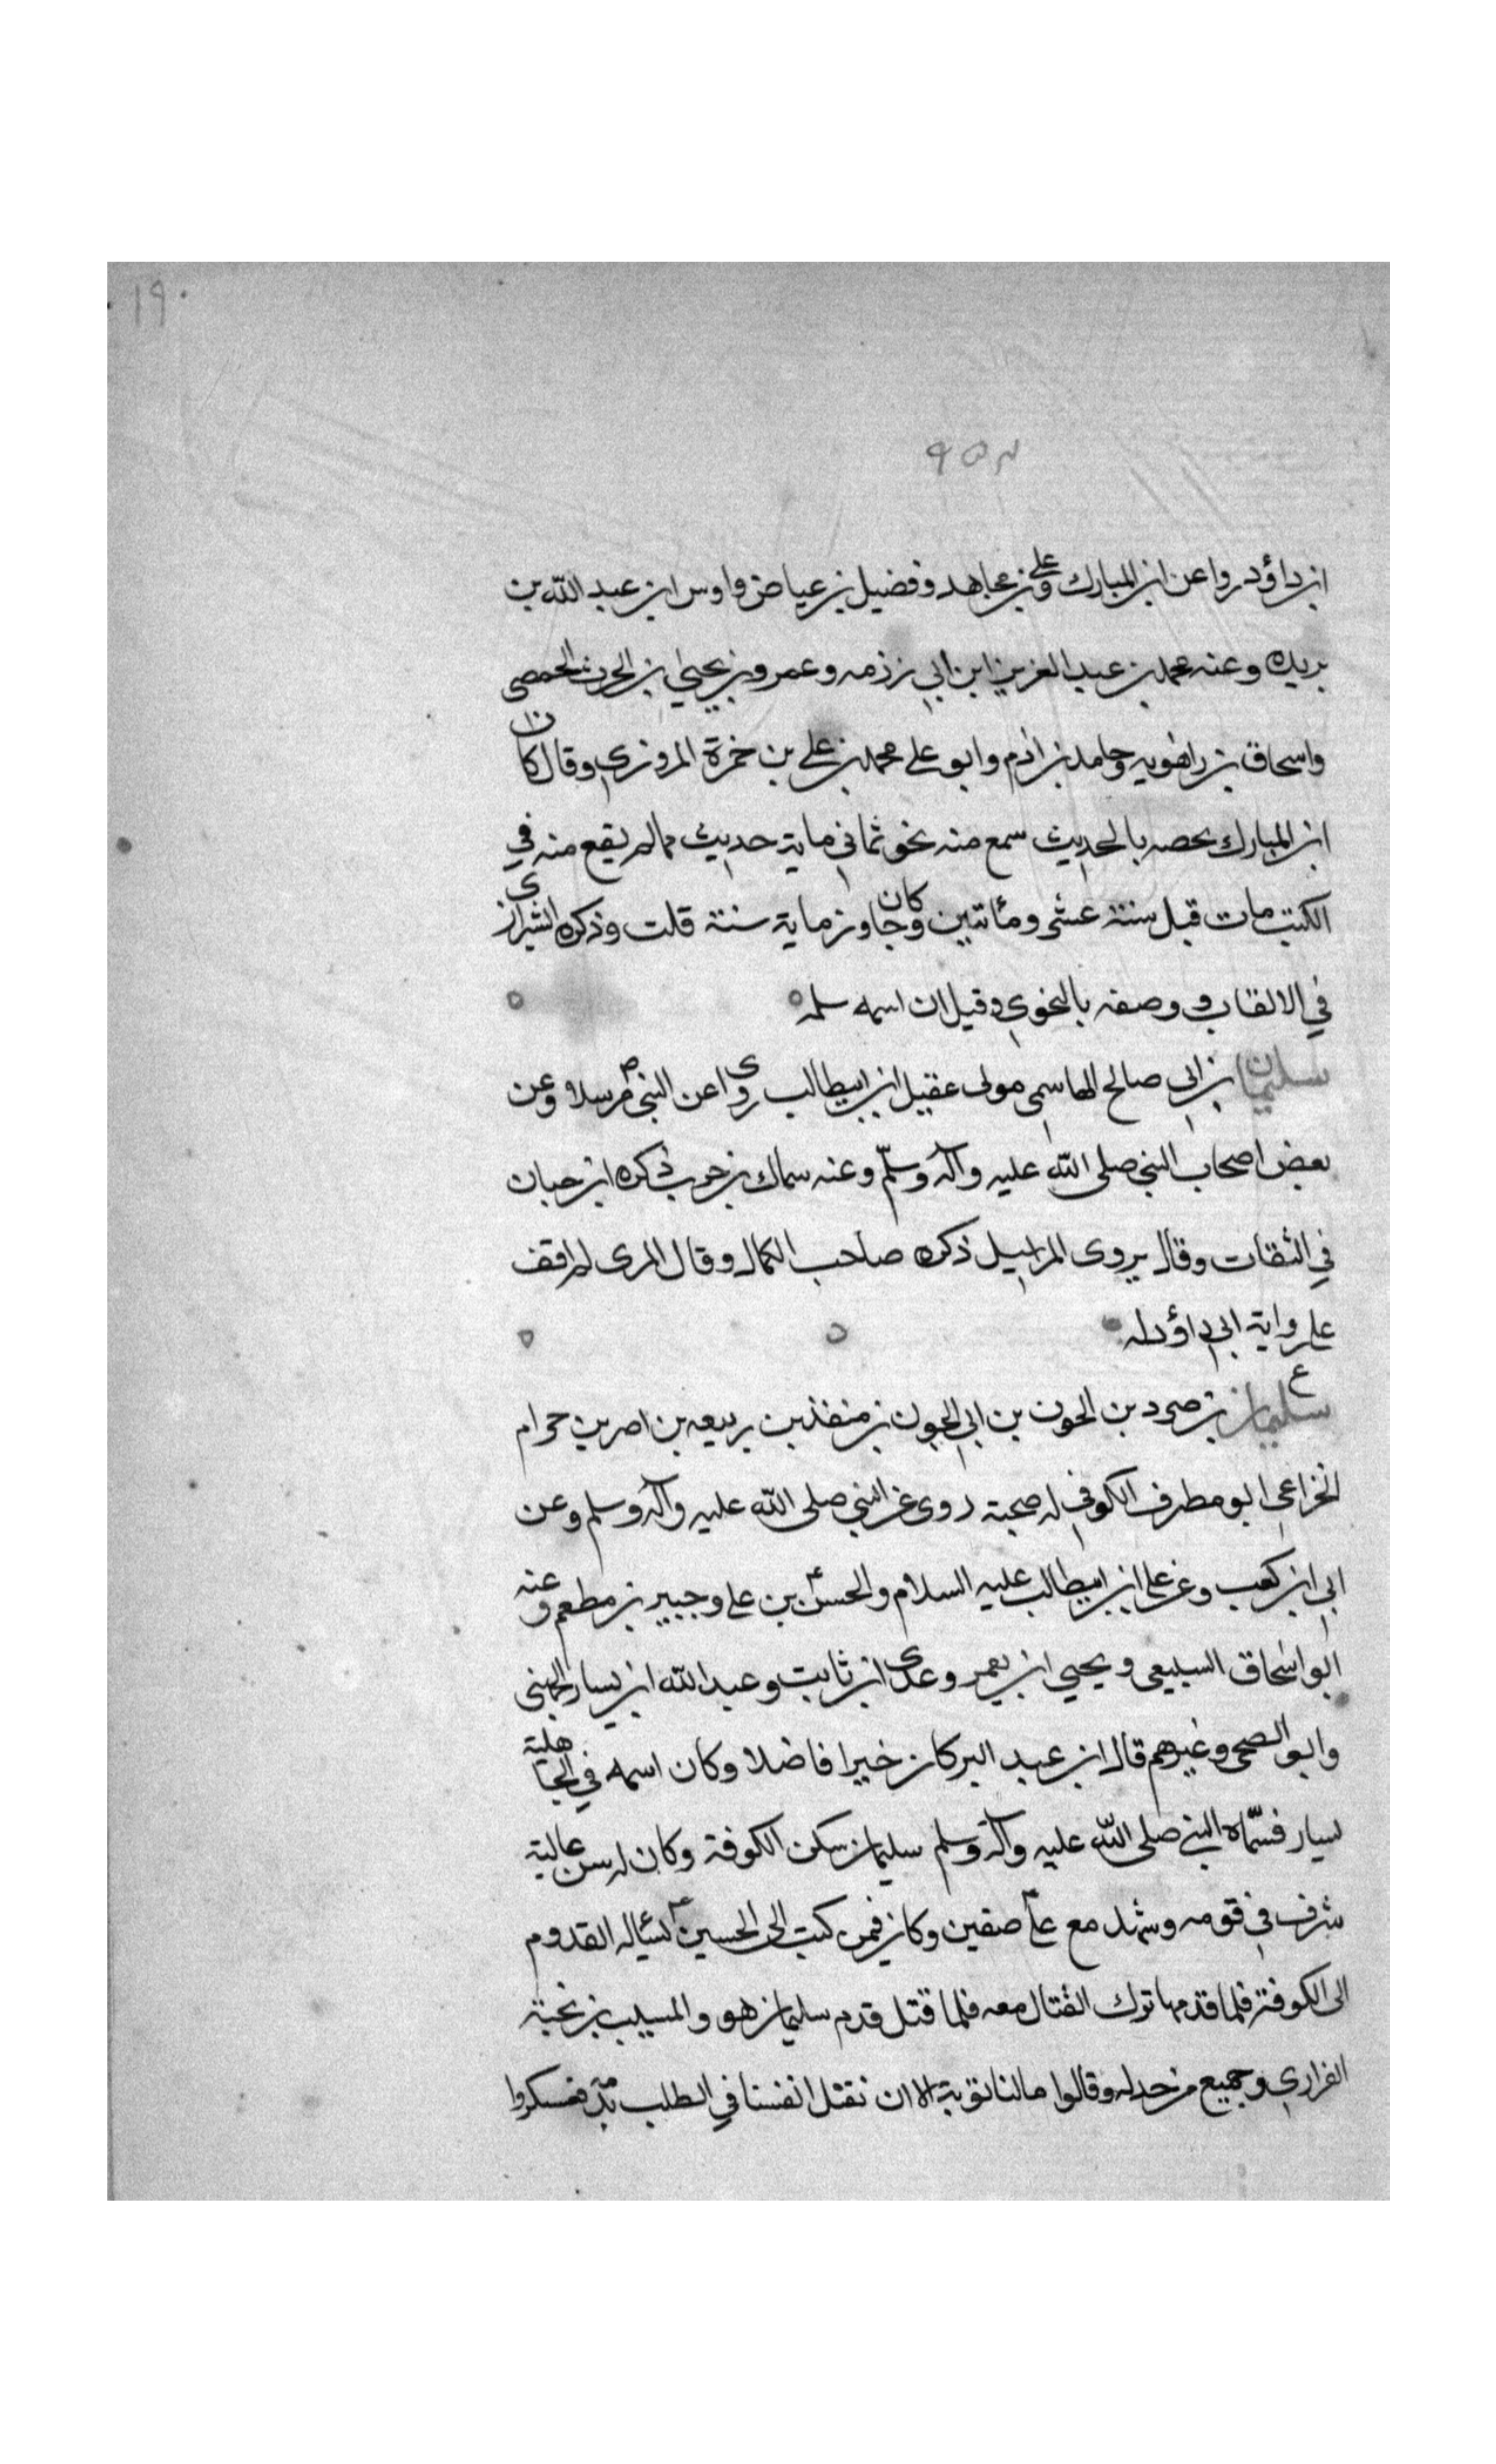 ١٩
ابن داؤد روا عن ابن المبارك وعلي بن مجاهد وفضيل بن عياض واوس ابن عبد الله بن
بريده وعنه محمد بن عبد العزيز ابن ابي رزمه وعمرو بن يحيى بن الحرث الحمصي
واسحاق بن راهويه وحامد بن ادم وابو علي محمد بن علي بن حمزة المروزي وقال كان
ابن المبارك يخصه بالحديث سمع منه نحو ثماني ماية حديث مما لم يقع منه في
الكتب مات قبل سنة عشر ومأتين وكان جاوز ماية سنة قلت وذكره الشيرازي
في الالقاب ووصفه بالنحوي وقيل ان اسمه سلمه
سليمان بن ابي صالح الهاسمي مولى عقيل ابن ابيطالب روى عن النبي ص مرسلا وعن
بعض اصحاب النبي صلى الله عليه وآله وسلّم وعنه سماك بن حرب ذكره ابن حبان
في الثقات وقال يروى المراسيل ذكره صاحب الكمال وقال المزى لم اقف
على رواية ابي داؤد له
ع
سليمان بن صرد بن الجون بن ابي الجون بن منقذ بن ربيعه بن اصرم بن حرام
الخزاعي ابو مطرف الكوفي له صحبة روى عن النبي صلى الله عليه وآله وسلم وعن
ابي ابن كعب وعن علي ابن ابيطالب عليه السلام والحسن بن علي وجبير بن مطعم وعنه
ابو اسحاق السبيعي ويحيي ابن يعمر وعدى ابن ثابت وعبد الله ابن يسار الجهني
وابو الضحى وغيرهم قال ابن عبد البر كان خيرا فاضلا وكان اسمه في الجاهلية
يسار فسّماه النبي صلى الله عليه وآله وسلم سليمان سكن الكوفة وكان له سن عالية
شرف في قومه وشهد مع علي صفين وكان فمن كتب الى الحسين يسئاله القدوم
الى الكوفة فلما قدمها ترك القتال معه فلما قتل قدم سليمان هو والمسيب بن نجبة
الفزاري وجميع من خذله وقالوا مالنا توبة الا ان نقتل انفسنا في الطلب بدمه فعسكروا